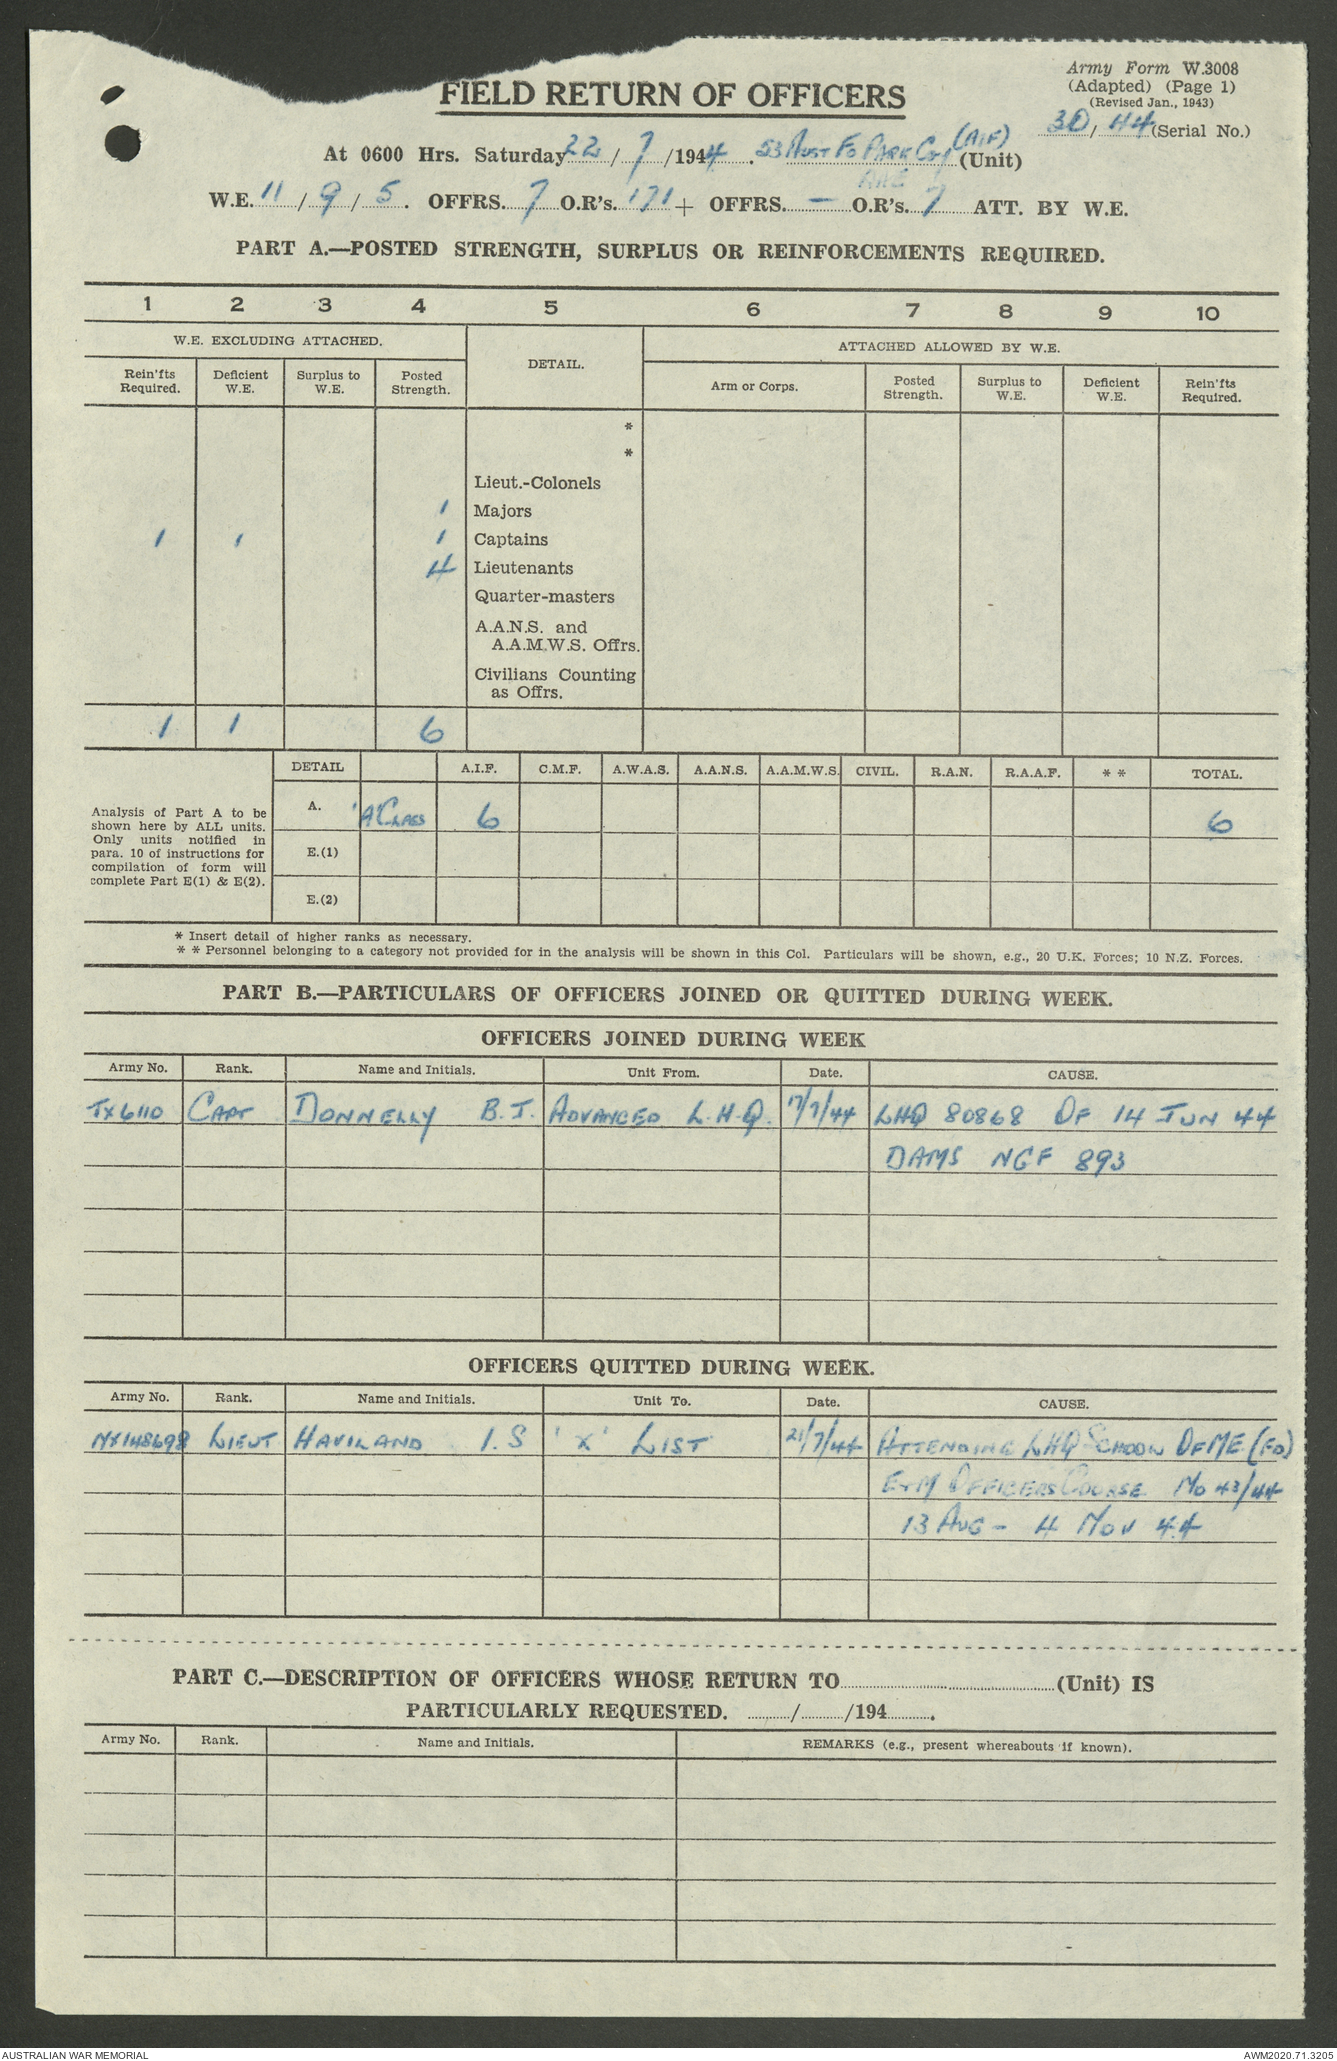 Army Form W.3008
(Adapted) (Page 1)
(Revised Jan., 1943)
30/44 (Serial No.)
FIELD RETURN OF OFFICERS
At 0600 Hrs. Saturday 22/7/1944. 53 Aust Fd Park Coy (AIF) (Unit)
RAE
W.E. 11/9/5. OFFRS. 7 O.R's. 171 + OFFRS. — O.R's. 7 ATT. BY W.E.
PART A.—POSTED STRENGTH, SURPLUS OR REINFORCEMENTS REQUIRED.
1 2 3 4 5 6 7 8 9 10
W.E. EXCLUDING ATTACHED. DETAIL. ATTACHED ALLOWED BY W.E.
Rein'fts Required. Deficient W.E. Surplus to W.E. Posted Strength. Arm or Corps. Posted Strength. Surplus to W.E. Deficient W.E. Rein'fts Required.
*
*
Lieut.-Colonels
1 Majors
1 1 1 Captains
4 Lieutenants
Quarter-masters
A.A.N.S. and
A.A.M.W.S. Offrs.
Civilians Counting
as Offrs.
1 1 6
DETAIL A.I.F. C.M.F. A.W.A.S. A.A.N.S. A.A.M.W.S. CIVIL. R.A.N. R.A.A.F. * * TOTAL.
Analysis of Part A to be
shown here by ALL units.
Only units notified in
para. 10 of instructions for
compilation of form will
complete Part E(1) & E(2).
A. 'A' Class 6 6
E.(1)
E.(2)
* Insert detail of higher ranks as necessary.
* * Personnel belonging to a category not provided for in the analysis will be shown in this Col. Particulars will be shown, e.g., 20 U.K. Forces; 10 N.Z. Forces.
PART B.—PARTICULARS OF OFFICERS JOINED OR QUITTED DURING WEEK.
OFFICERS JOINED DURING WEEK
Army No. Rank. Name and Initials. Unit From. Date. CAUSE.
TX6110 CAPT DONNELLY B.J. ADVANCED L.H.Q. 17/7/44 LHQ 80868 OF 14 JUN 44
DAMS NGF 893
OFFICERS QUITTED DURING WEEK.
Army No. Rank. Name and Initials. Unit To. Date. CAUSE.
NX148698 LIEUT HAVILAND I.S 'X' LIST 21/7/44 ATTENDING LHQ SCHOOL OF ME (FD)
E+M OFFICERS COURSE No 43/44
13 AUG - 4 NOV 44
PART C.—DESCRIPTION OF OFFICERS WHOSE RETURN TO (Unit) IS
PARTICULARLY REQUESTED. / /194 .
Army No. Rank. Name and Initials. REMARKS (e.g., present whereabouts if known).
AUSTRALIAN WAR MEMORIAL AWM2020.71.3205